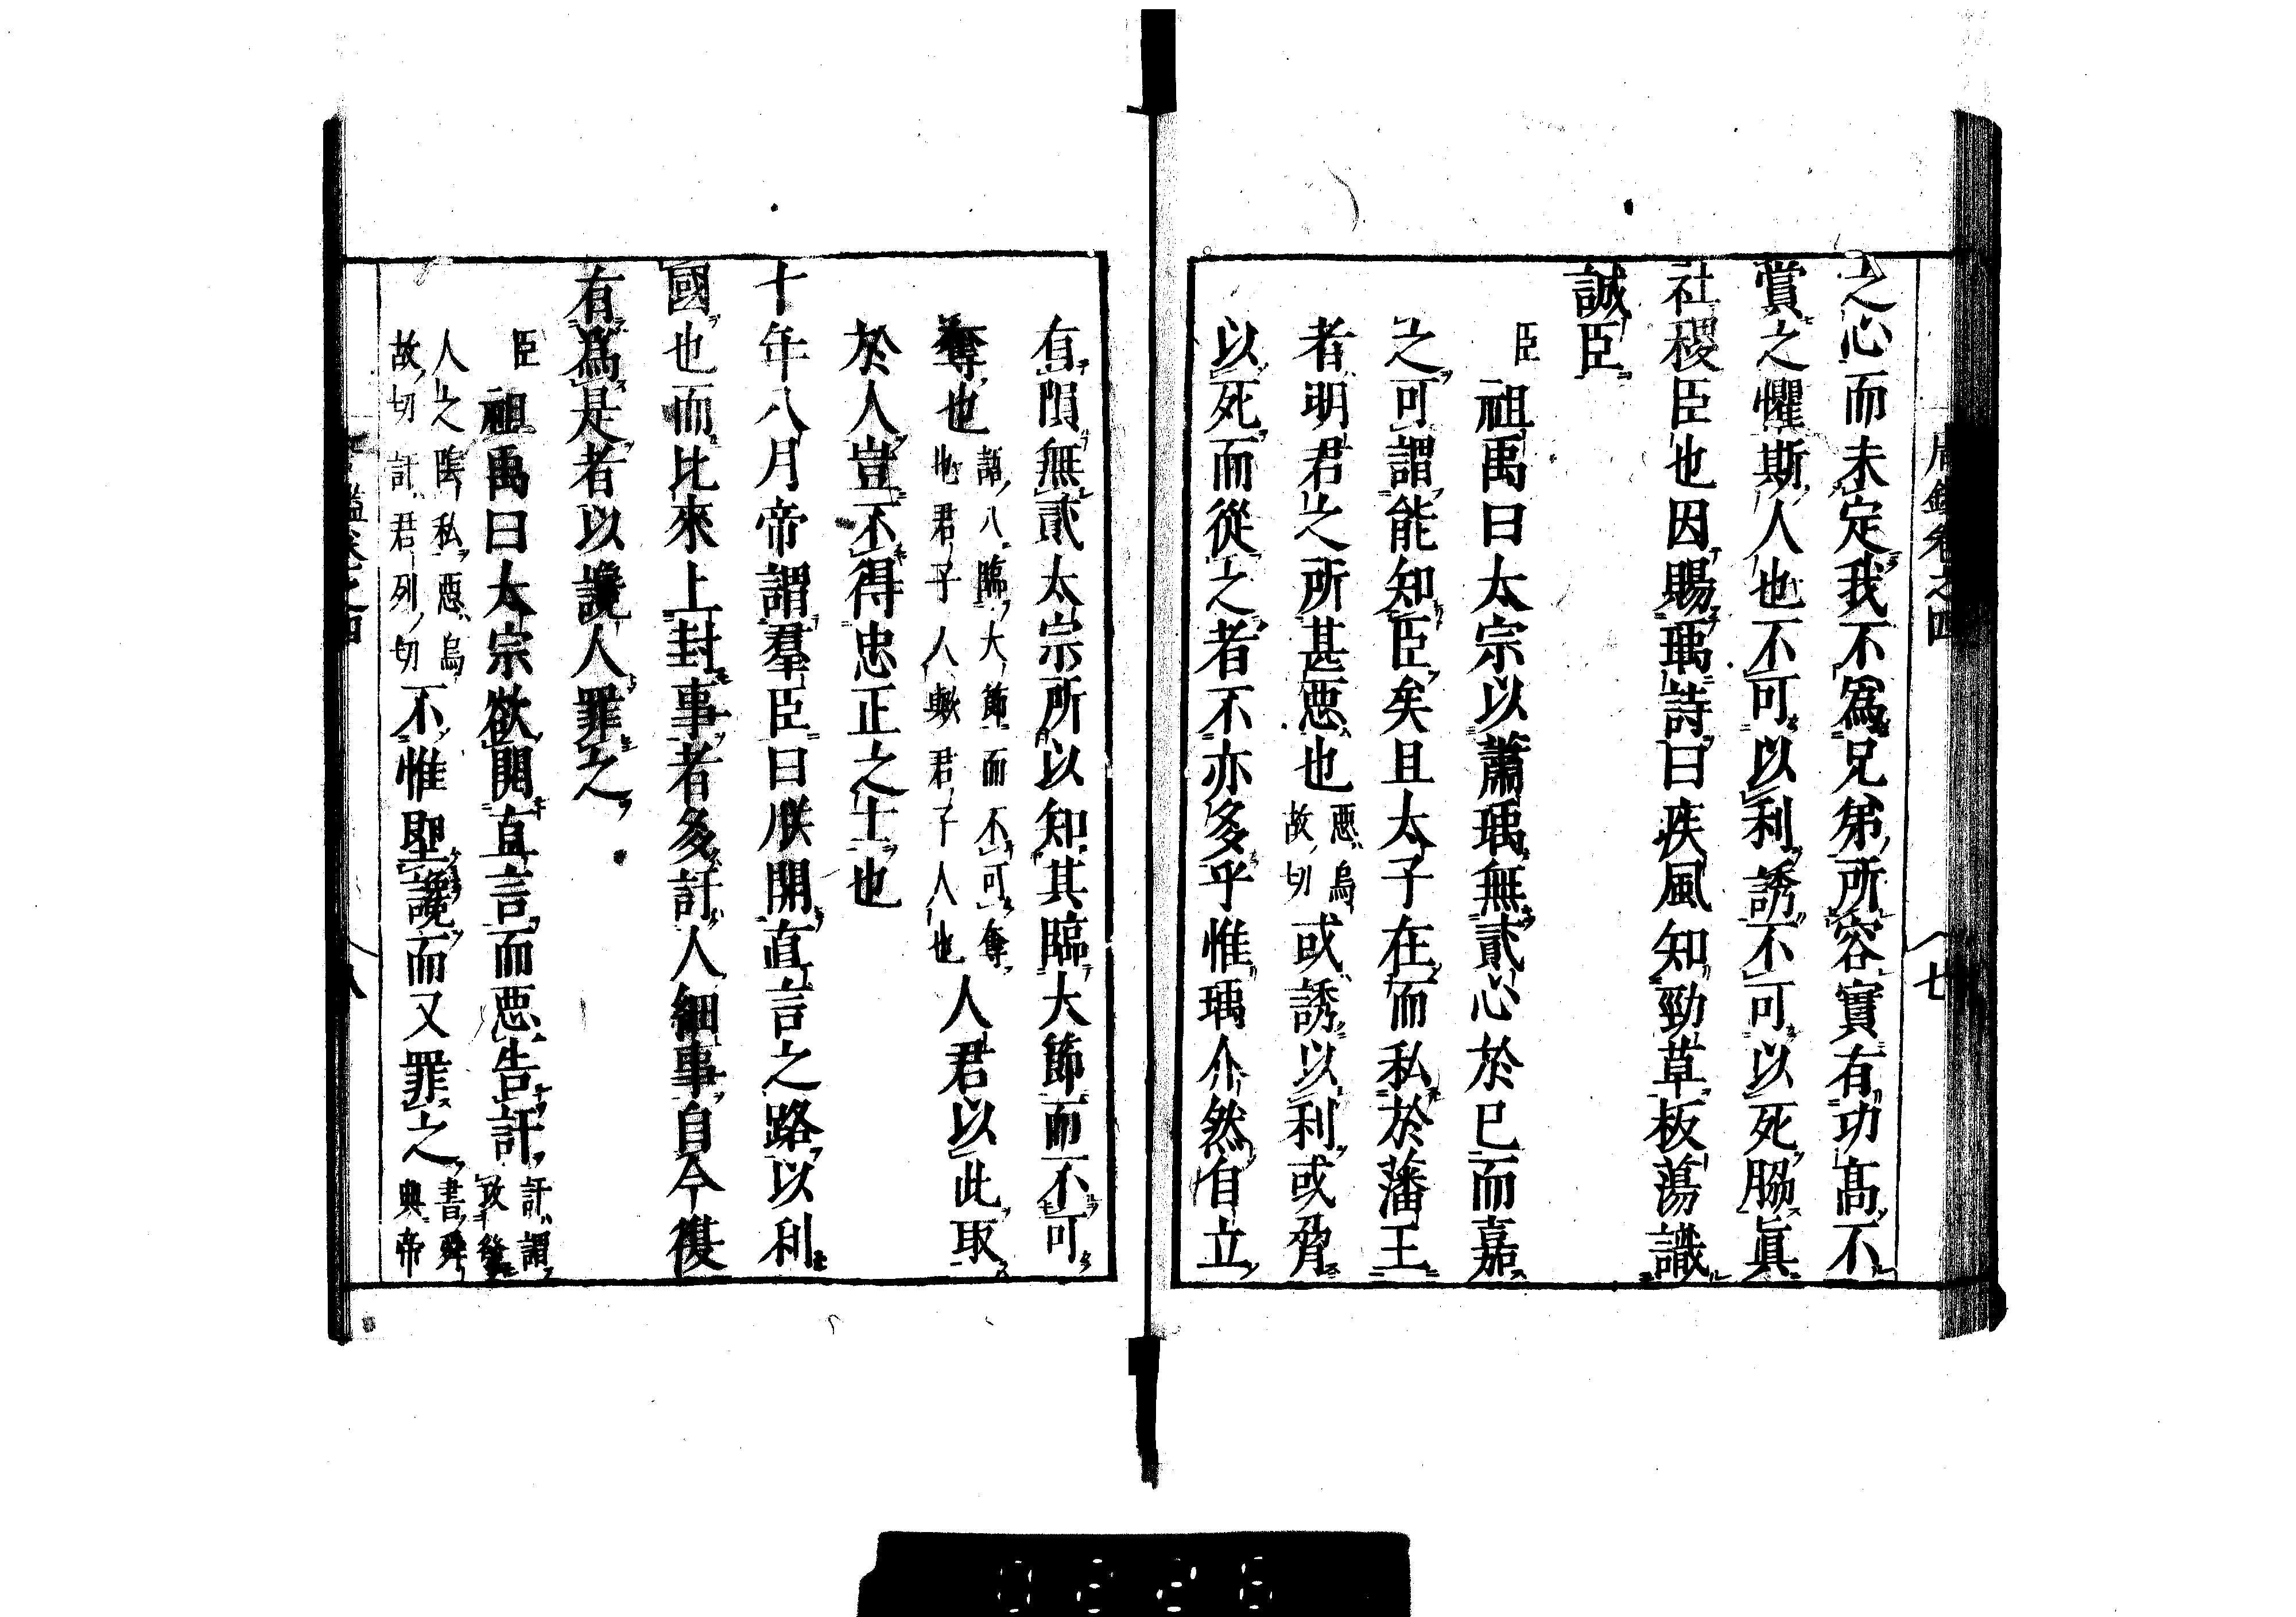 唐鑑卷之四
七
之心而未定我不爲兄弟所容實有功高不
賞之懼斯人也不可以利誘不可以死脇眞
社稷臣也因賜瑀詩曰疾風知勁草板蕩識
誠臣
臣祖禹曰太宗以蕭瑀無貳心於已而嘉
之可謂能知臣矣且太子在而私於藩王
者明君之所甚惡也惡烏故切或誘以利或脅
以死而從之者不亦多乎惟瑀介然自立
有隕無貳太宗所以知其臨大節而不可
奪也語八臨大節而不可奪也君子人歟君子人也人君以此取
於人豈不得忠正之士也
十年八月帝謂羣臣曰朕開直言之路以利
國也而比來上封事者多訐人細事自今復
有爲是者以讒人罪之
臣祖禹曰太宗欲開直言而惡告訐訐謂攻發
人之陰私惡烏故切訐君列切不惟聖讒而又罪之書舜典帝
鑑卷之四
八